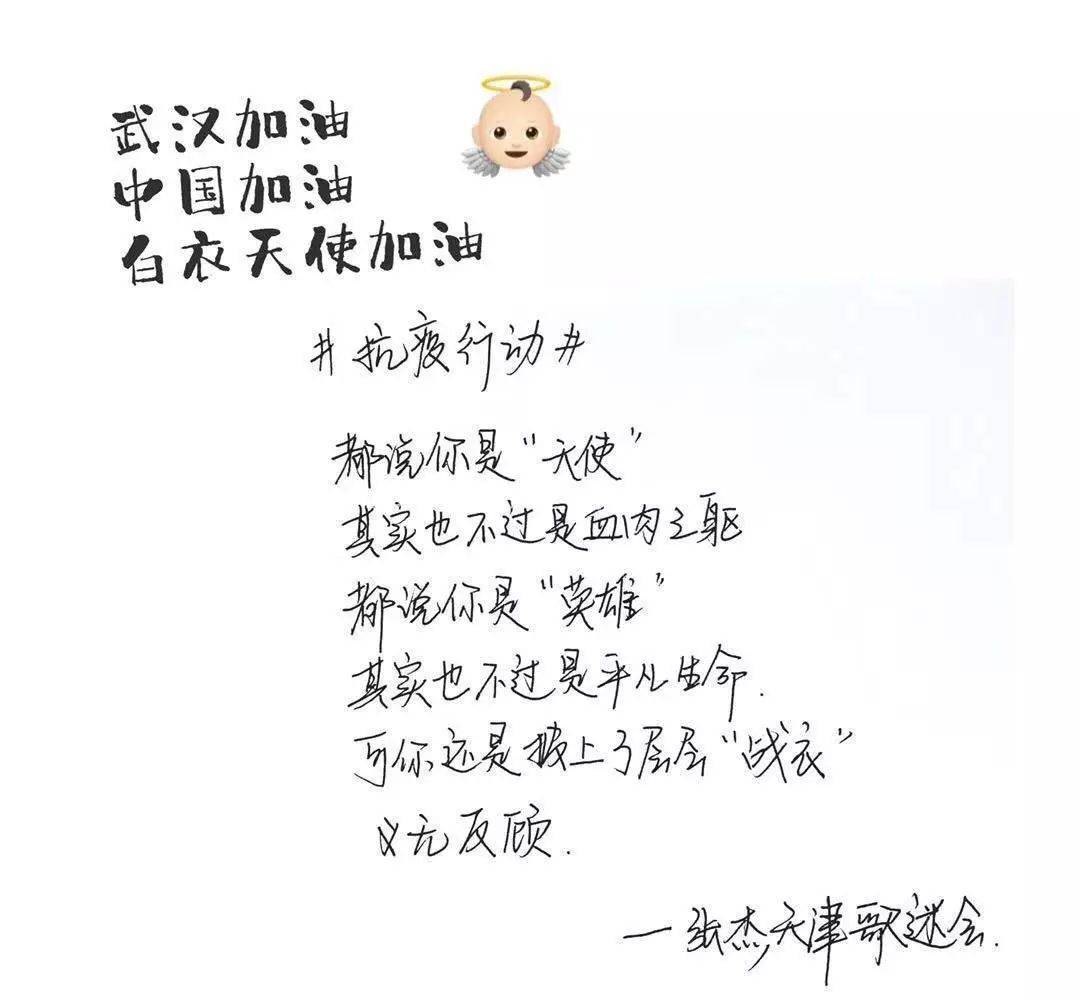 武汉加油
中国加油
白衣天使加油
#抗疫行动#
都说你是“天使”
其实也不过是血肉之躯
都说你是“英雄”
其实也不过是平凡生命.
可你还是披上了层层“战衣”
义无反顾.
—张杰天津歌迷会.